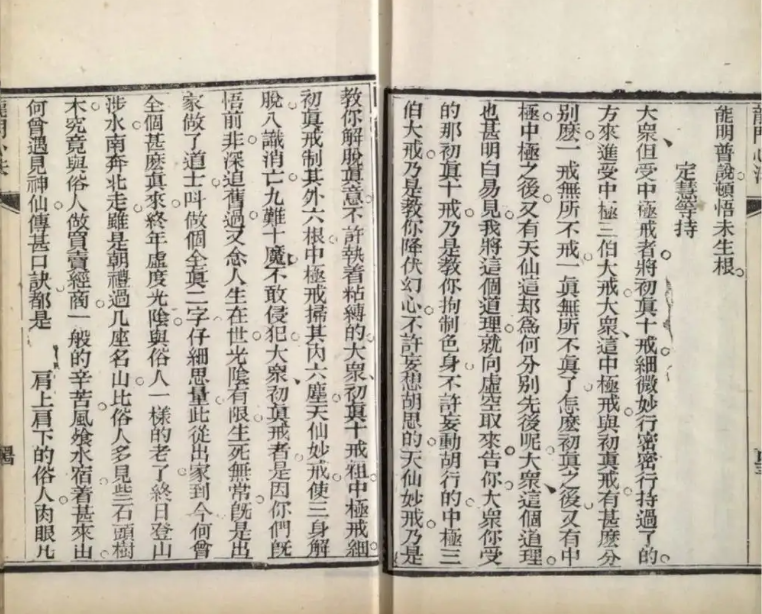 能明普說頓悟未生根
定慧等持
大衆但受中極戒者將初眞十戒細微妙行密密行持過了的
方來進受中極三伯大戒大衆這中極戒與初眞戒有甚麽分
别麽一戒無所不戒一眞無所不眞了怎麽初眞之後又有中
極中極之後又有天仙這却爲何分别先後呢大衆這個道理
也甚明白易見我將這個道理就向虛空取來告你大衆你受
的那初眞十戒乃是教你拘制色身不許妄動胡行的中極三
伯大戒乃是教你降伏幻心不許妄想胡思的天仙妙戒乃是
教你解脫眞意不許執着枯縛的大衆初眞十戒粗中極戒細
初眞戒制其外六根中極戒掃其内六塵天仙妙戒使三身解
脫八識消亡九難十魔不敢侵犯大衆初眞戒者是因你們旣
悟前非深追舊過又念人生在世光陰有限生死無常旣是出
家做了道士呌做個全眞二字仔細思量此從出家到今何曾
全個甚麽眞來終年虛度光陰與俗人一樣的老了終日登山
涉水南奔北走雖是朝禮過几座名山比俗人多見些石頭樹
木究竟與俗人做買賣經商一般的辛苦風飡水宿着甚來由
何曾遇見神仙傳甚口訣都是 肩上肩下的俗人肉眼凡